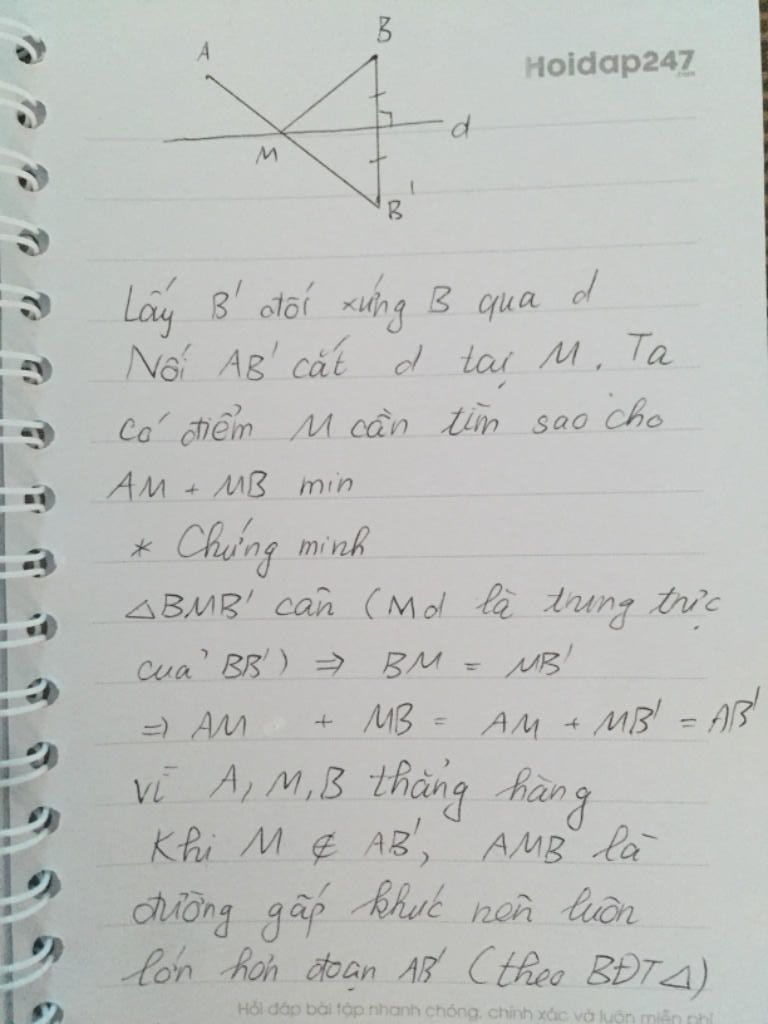 Hoidap247
.com
A
B
M
d
B'
Lấy B' đối xứng B qua d
Nối AB' cắt d tại M. Ta
có điểm M cần tìm sao cho
AM + MB min
* Chứng minh
△BMB' cân (Md là trung trực
của BB') ⇒ BM = MB'
⇒ AM + MB = AM + MB' = AB'
vì A, M, B thẳng hàng
Khi M ∉ AB', AMB là
đường gấp khúc nên luôn
lớn hơn đoạn AB' (theo BĐT△)
Hỏi đáp bài tập nhanh chóng, chính xác và luôn miễn phí